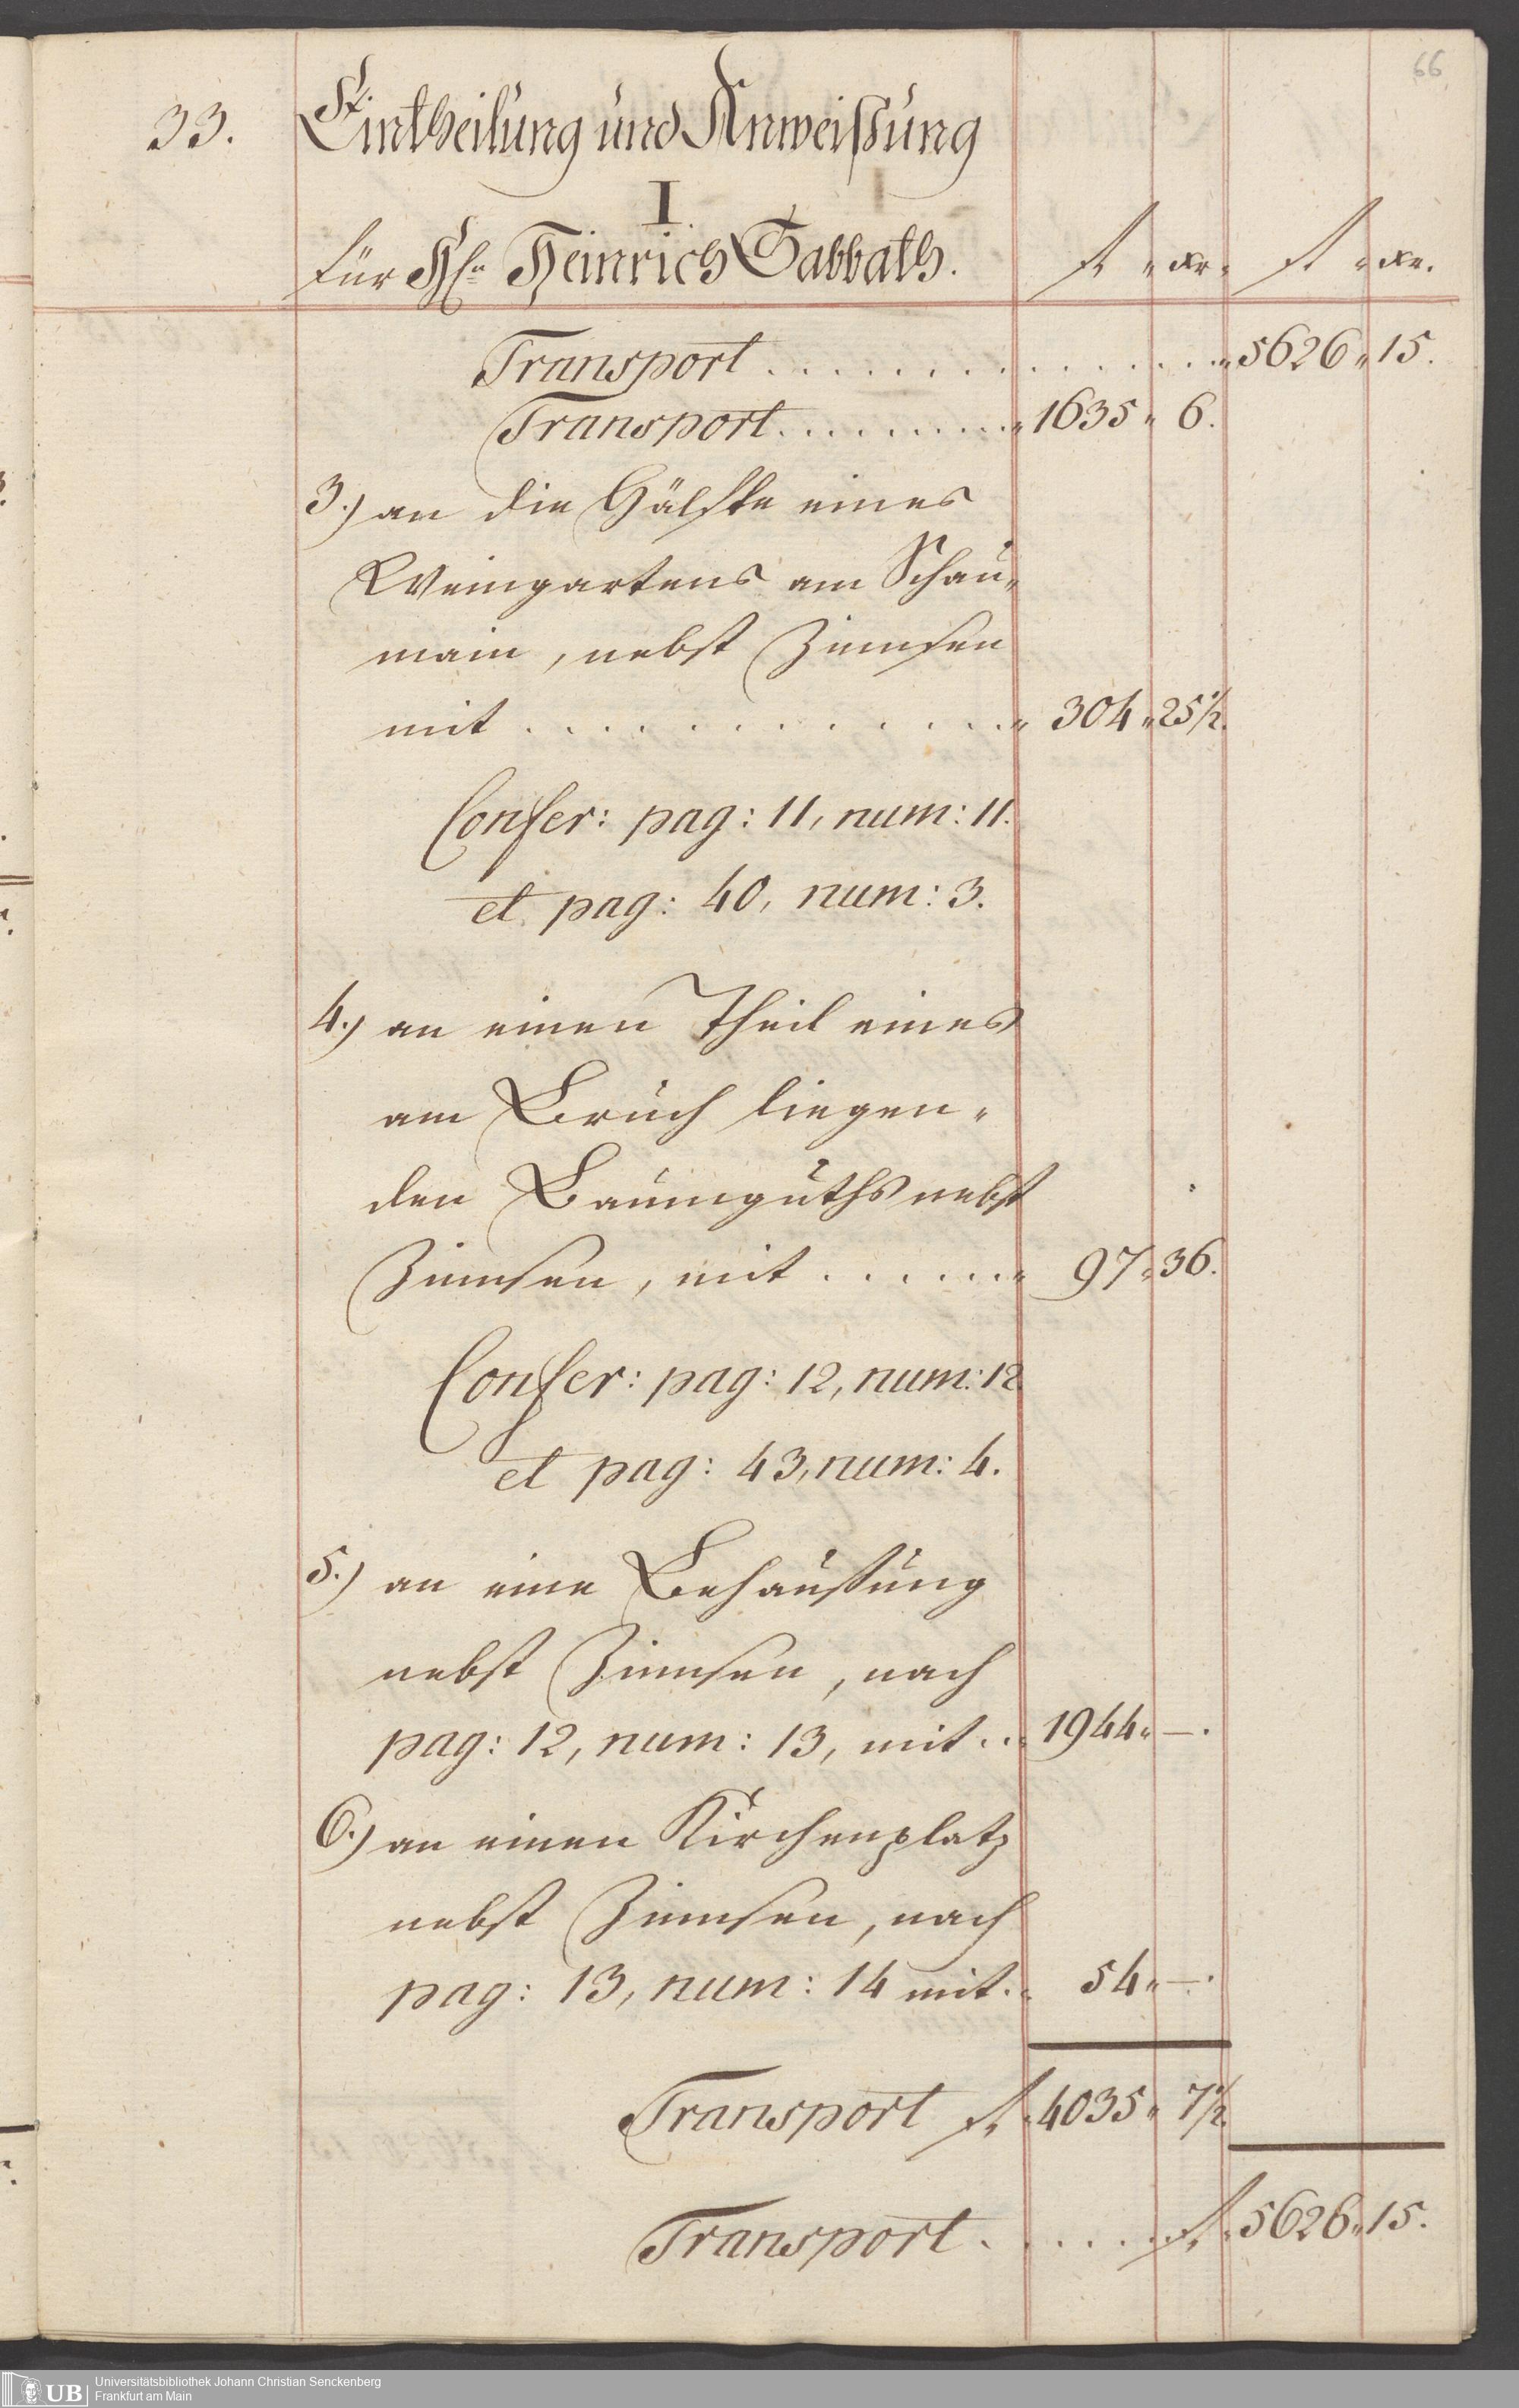 66
33. Eintheilung und Anweißung
I.
für Hrn Heinrich Sabbath. fl " xr. fl " xr.
Transport . . . . . . . . . . . . . . " 5626 " 15.
Transport . . . . . . . . . . " 1635 " 6.
3.) an die Hälfte eines
Weingartens am Schau"
main, nebst Zinnsen
mit . . . . . . . . . . . . . " 304 " 25 1/2.
Confer: pag: 11, num: 11.
et pag: 40, num: 3.
4.) an einen Theil eines
am Bruch liegen"
den Baumguths nebst
Zinnsen, mit . . . . . . " 97 " 36.
Confer: pag: 12, num: 12
et pag: 43, num: 4.
5.) an eine Behaußung
nebst Zinnsen, nach
pag: 12, num: 13, mit . . " 1944 " —.
6.) an einen Kirchenplatz
nebst Zinnsen, nach
pag: 13, num: 14 mit . " 54 " —.
Transport fl. 4035 " 7 1/2.
Transport . . . . . . fl. 5626 " 15.
UB Universitätsbibliothek Johann Christian Senckenberg
Frankfurt am Main